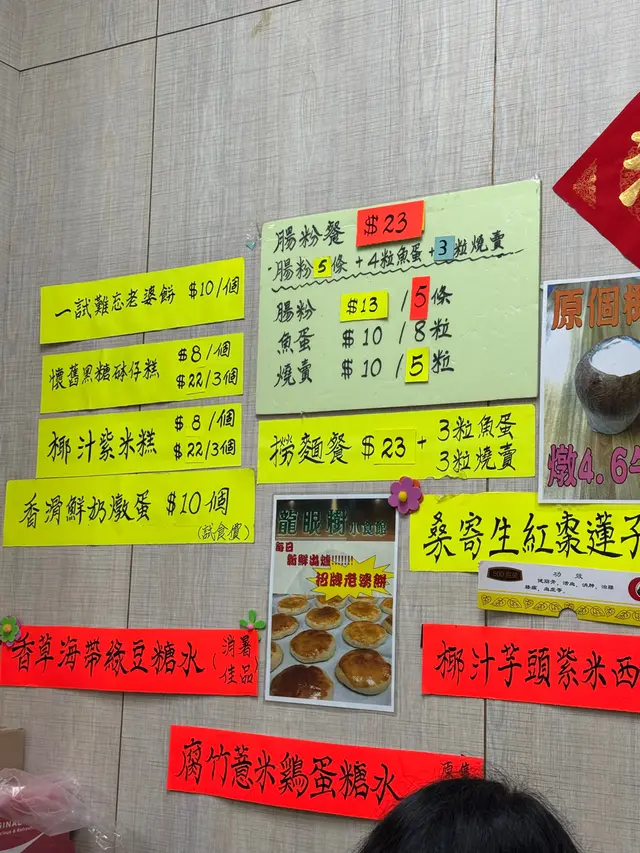 腸粉餐 $23
腸粉5條 + 4粒魚蛋 + 3粒燒賣
腸粉 $13 / 5條
魚蛋 $10 / 8粒
燒賣 $10 / 5粒
一試難忘老婆餅 $10/個
懷舊黑糖砵仔糕 $8/個
$22/3個
椰汁紫米糕 $8/個
$22/3個
香滑鮮奶燉蛋 $10個
(試食價)
撈麵餐 $23 + 3粒魚蛋
3粒燒賣
原個椰
燉4.6
龍眼樹小食館
每日
新鮮出爐!!!!!!!
招牌老婆餅
桑寄生紅棗蓮子
功效
香草海帶綠豆糖水 (消暑佳品)
椰汁芋頭紫米西
腐竹薏米鷄蛋糖水